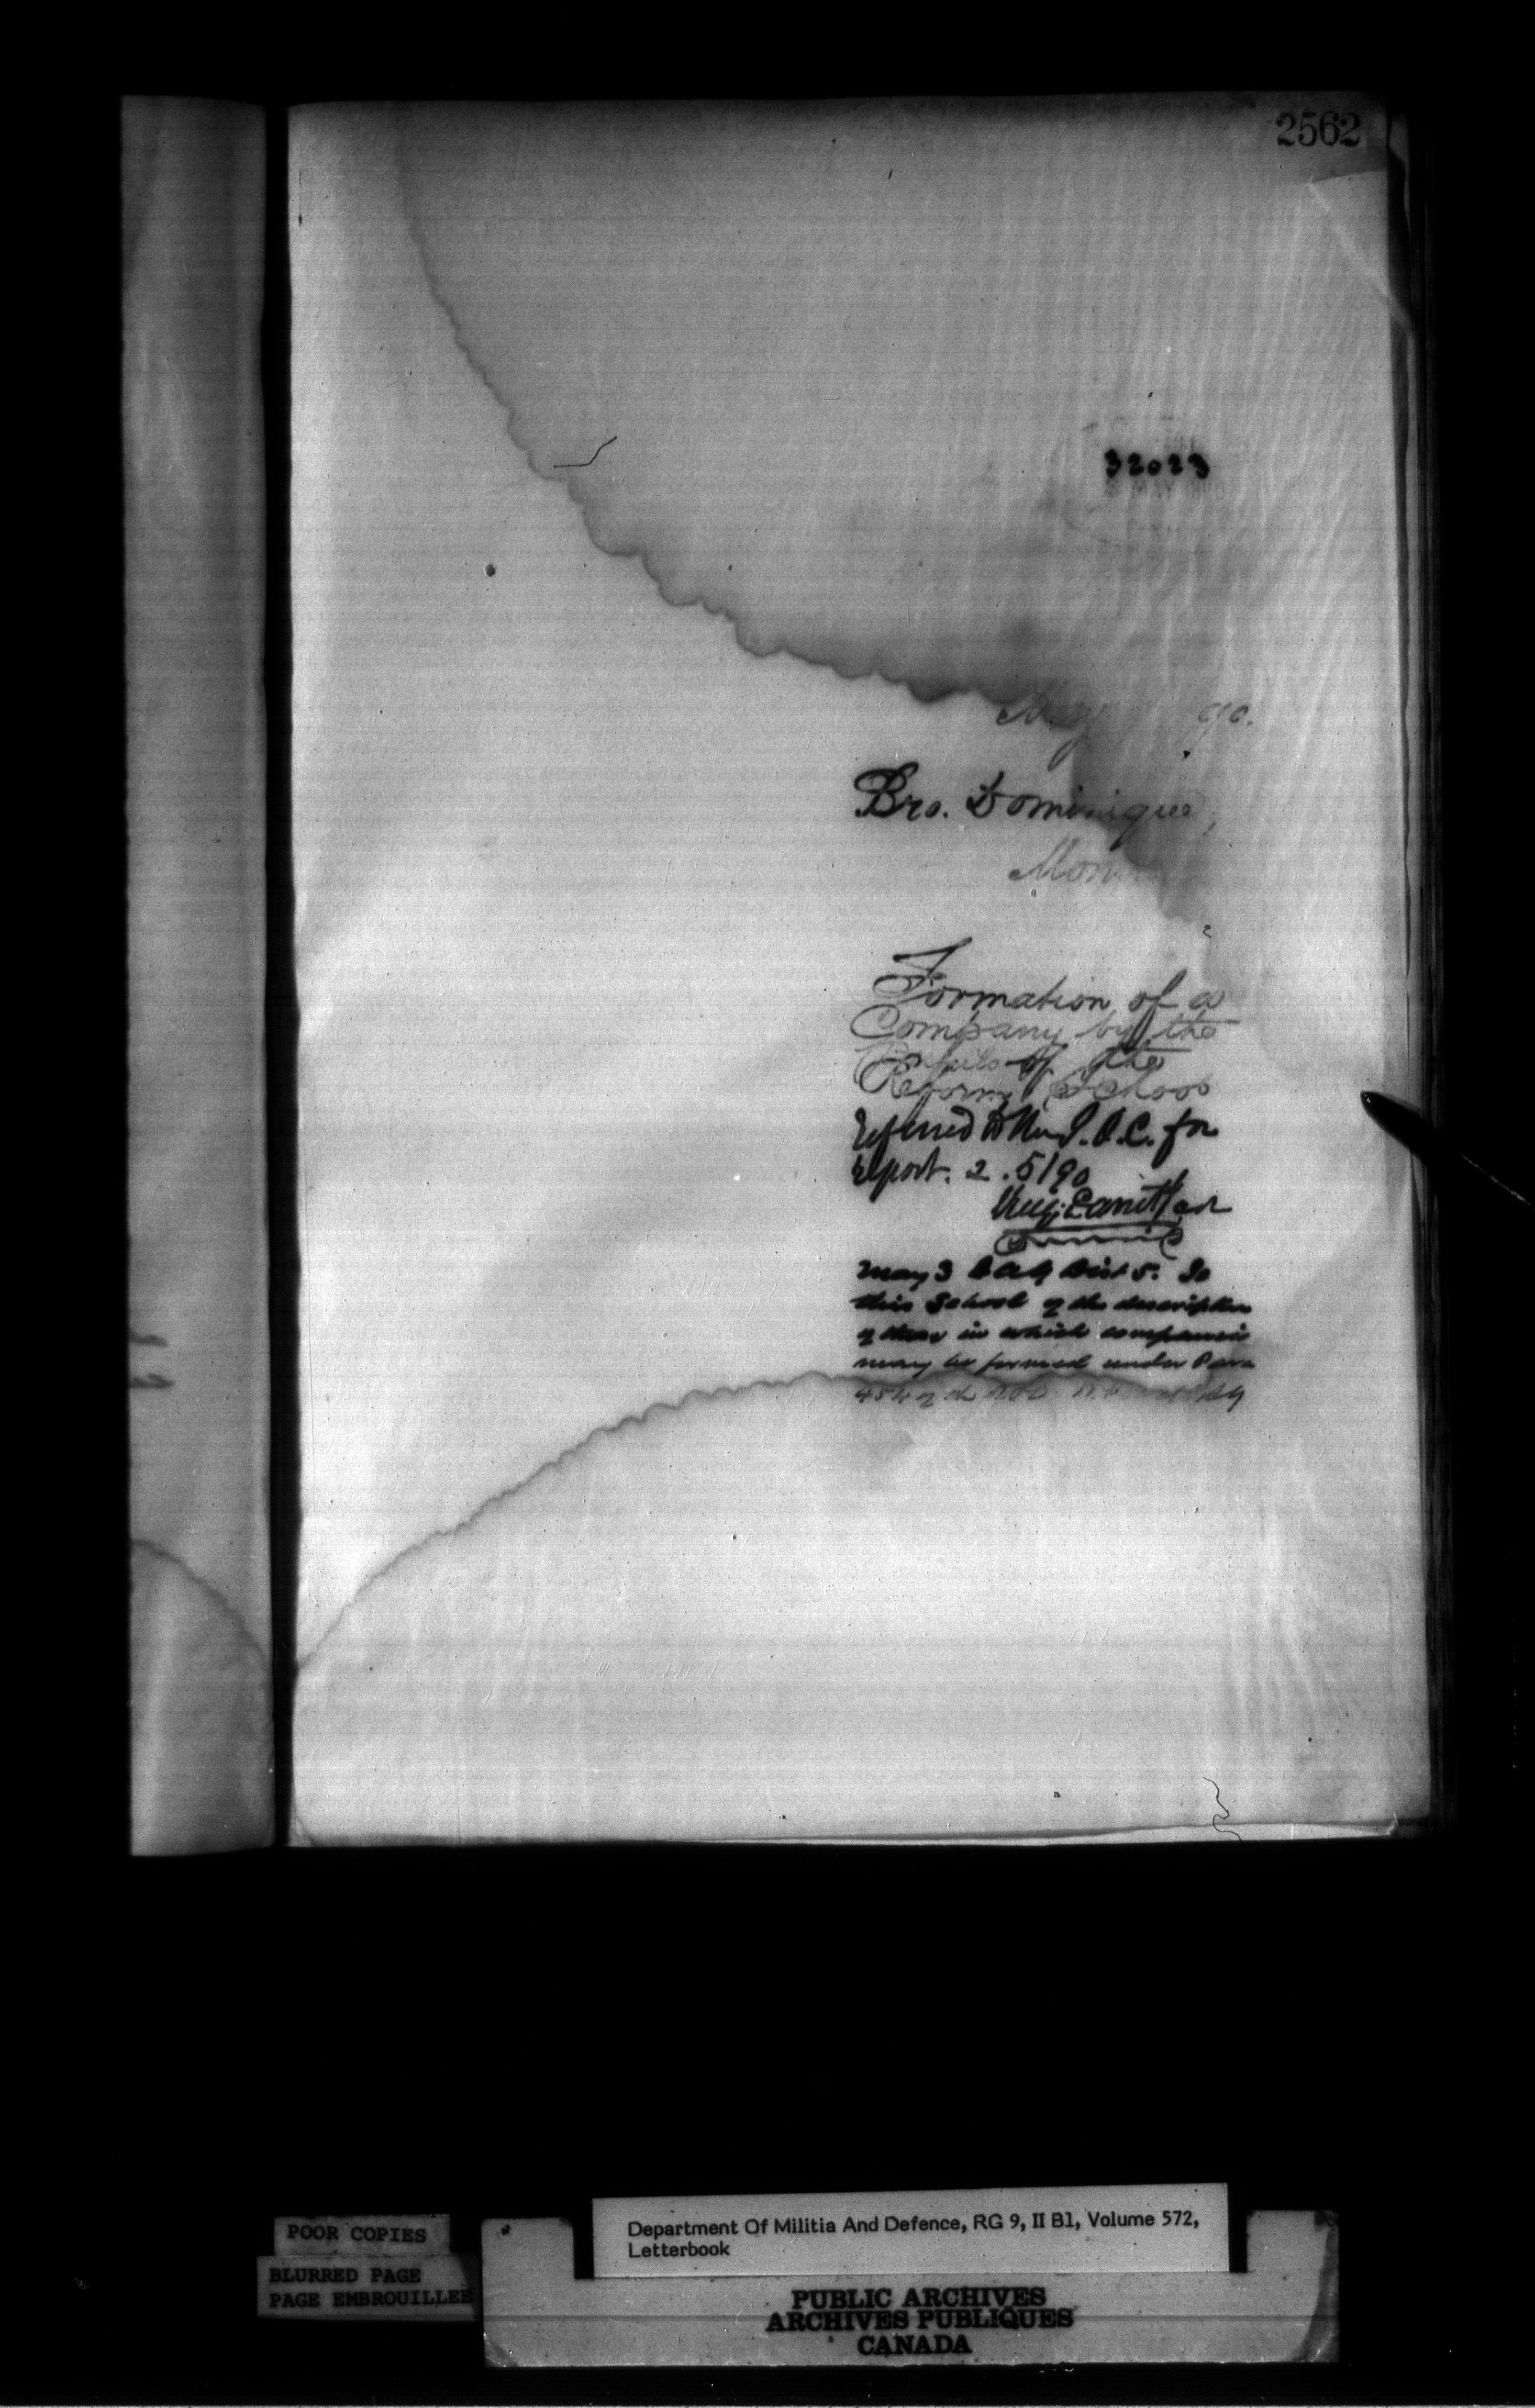 2562
32023
MAY
May 90.
Bro. Dominique,
Formation of a
Company by the
Pupils of the
Reform School
Referred to the D.A.G. for
report. 2.5/90
May 3 DAG Dist 5. Is
this School of the description
of those in which companies
may be formed under Para
454 of the
POOR COPIES
BLURRED PAGE
PAGE EMBROUILLEE
Department Of Militia And Defence, RG 9, II B1, Volume 572,
Letterbook
PUBLIC ARCHIVES
ARCHIVES PUBLIQUES
CANADA